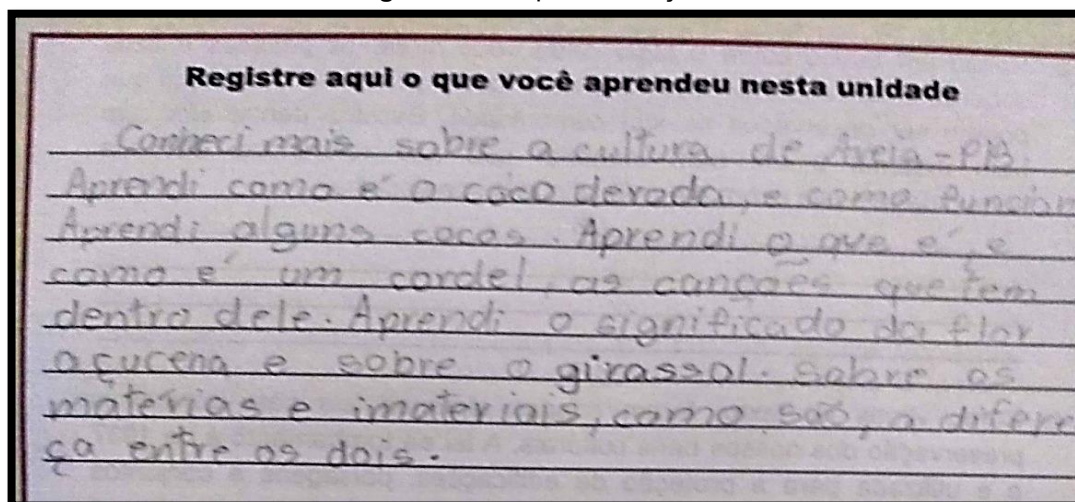 Registre aqui o que você aprendeu nesta unidade
Conheci mais sobre a cultura de Areia-PB.
Aprendi como é o coco deroda, e como funcion
Aprendi alguns cocos. Aprendi o que é, e
como é um cordel, as canções que tem
dentro dele. Aprendi o significado da flor
açucena e sobre o girassol. Sobre os
materias e imateriais, como são, a difere
ça entre os dois.